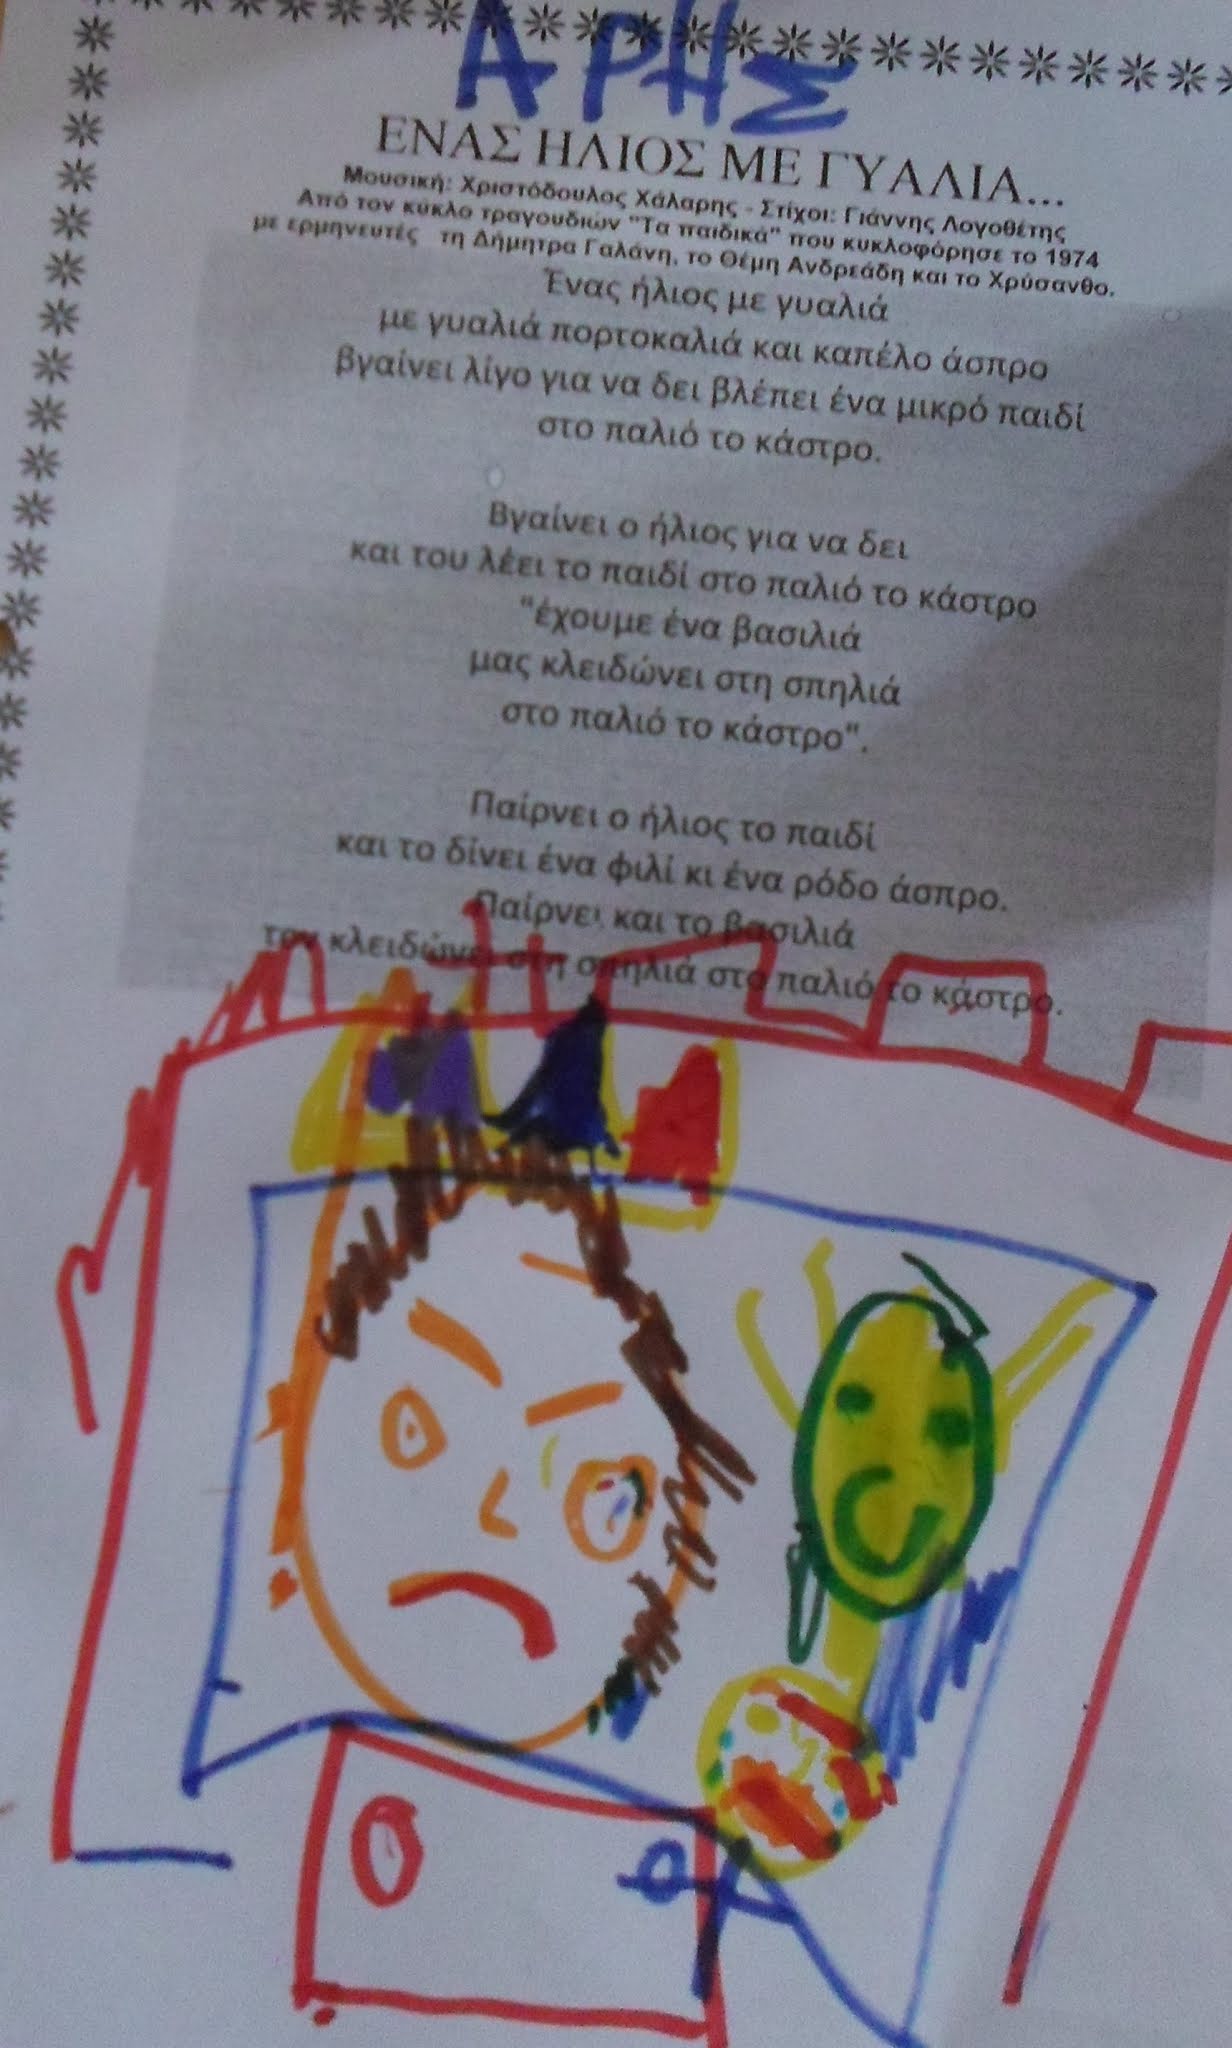 ΑΡΗΣ
ΕΝΑΣ ΗΛΙΟΣ ΜΕ ΓΥΑΛΙΑ...
Μουσική: Χριστόδουλος Χάλαρης - Στίχοι: Γιάννης Λογοθέτης
Από τον κύκλο τραγουδιών "Τα παιδικά" που κυκλοφόρησε το 1974
με ερμηνευτές τη Δήμητρα Γαλάνη, το Θέμη Ανδρεάδη και το Χρύσανθο.
Ένας ήλιος με γυαλιά
με γυαλιά πορτοκαλιά και καπέλο άσπρο
βγαίνει λίγο για να δει βλέπει ένα μικρό παιδί
στο παλιό το κάστρο.
Βγαίνει ο ήλιος για να δει
και του λέει το παιδί στο παλιό το κάστρο
"έχουμε ένα βασιλιά
μας κλειδώνει στη σπηλιά
στο παλιό το κάστρο".
Παίρνει ο ήλιος το παιδί
και το δίνει ένα φιλί κι ένα ρόδο άσπρο.
Παίρνει και το βασιλιά
τον κλειδώνει στη σπηλιά στο παλιό το κάστρο.